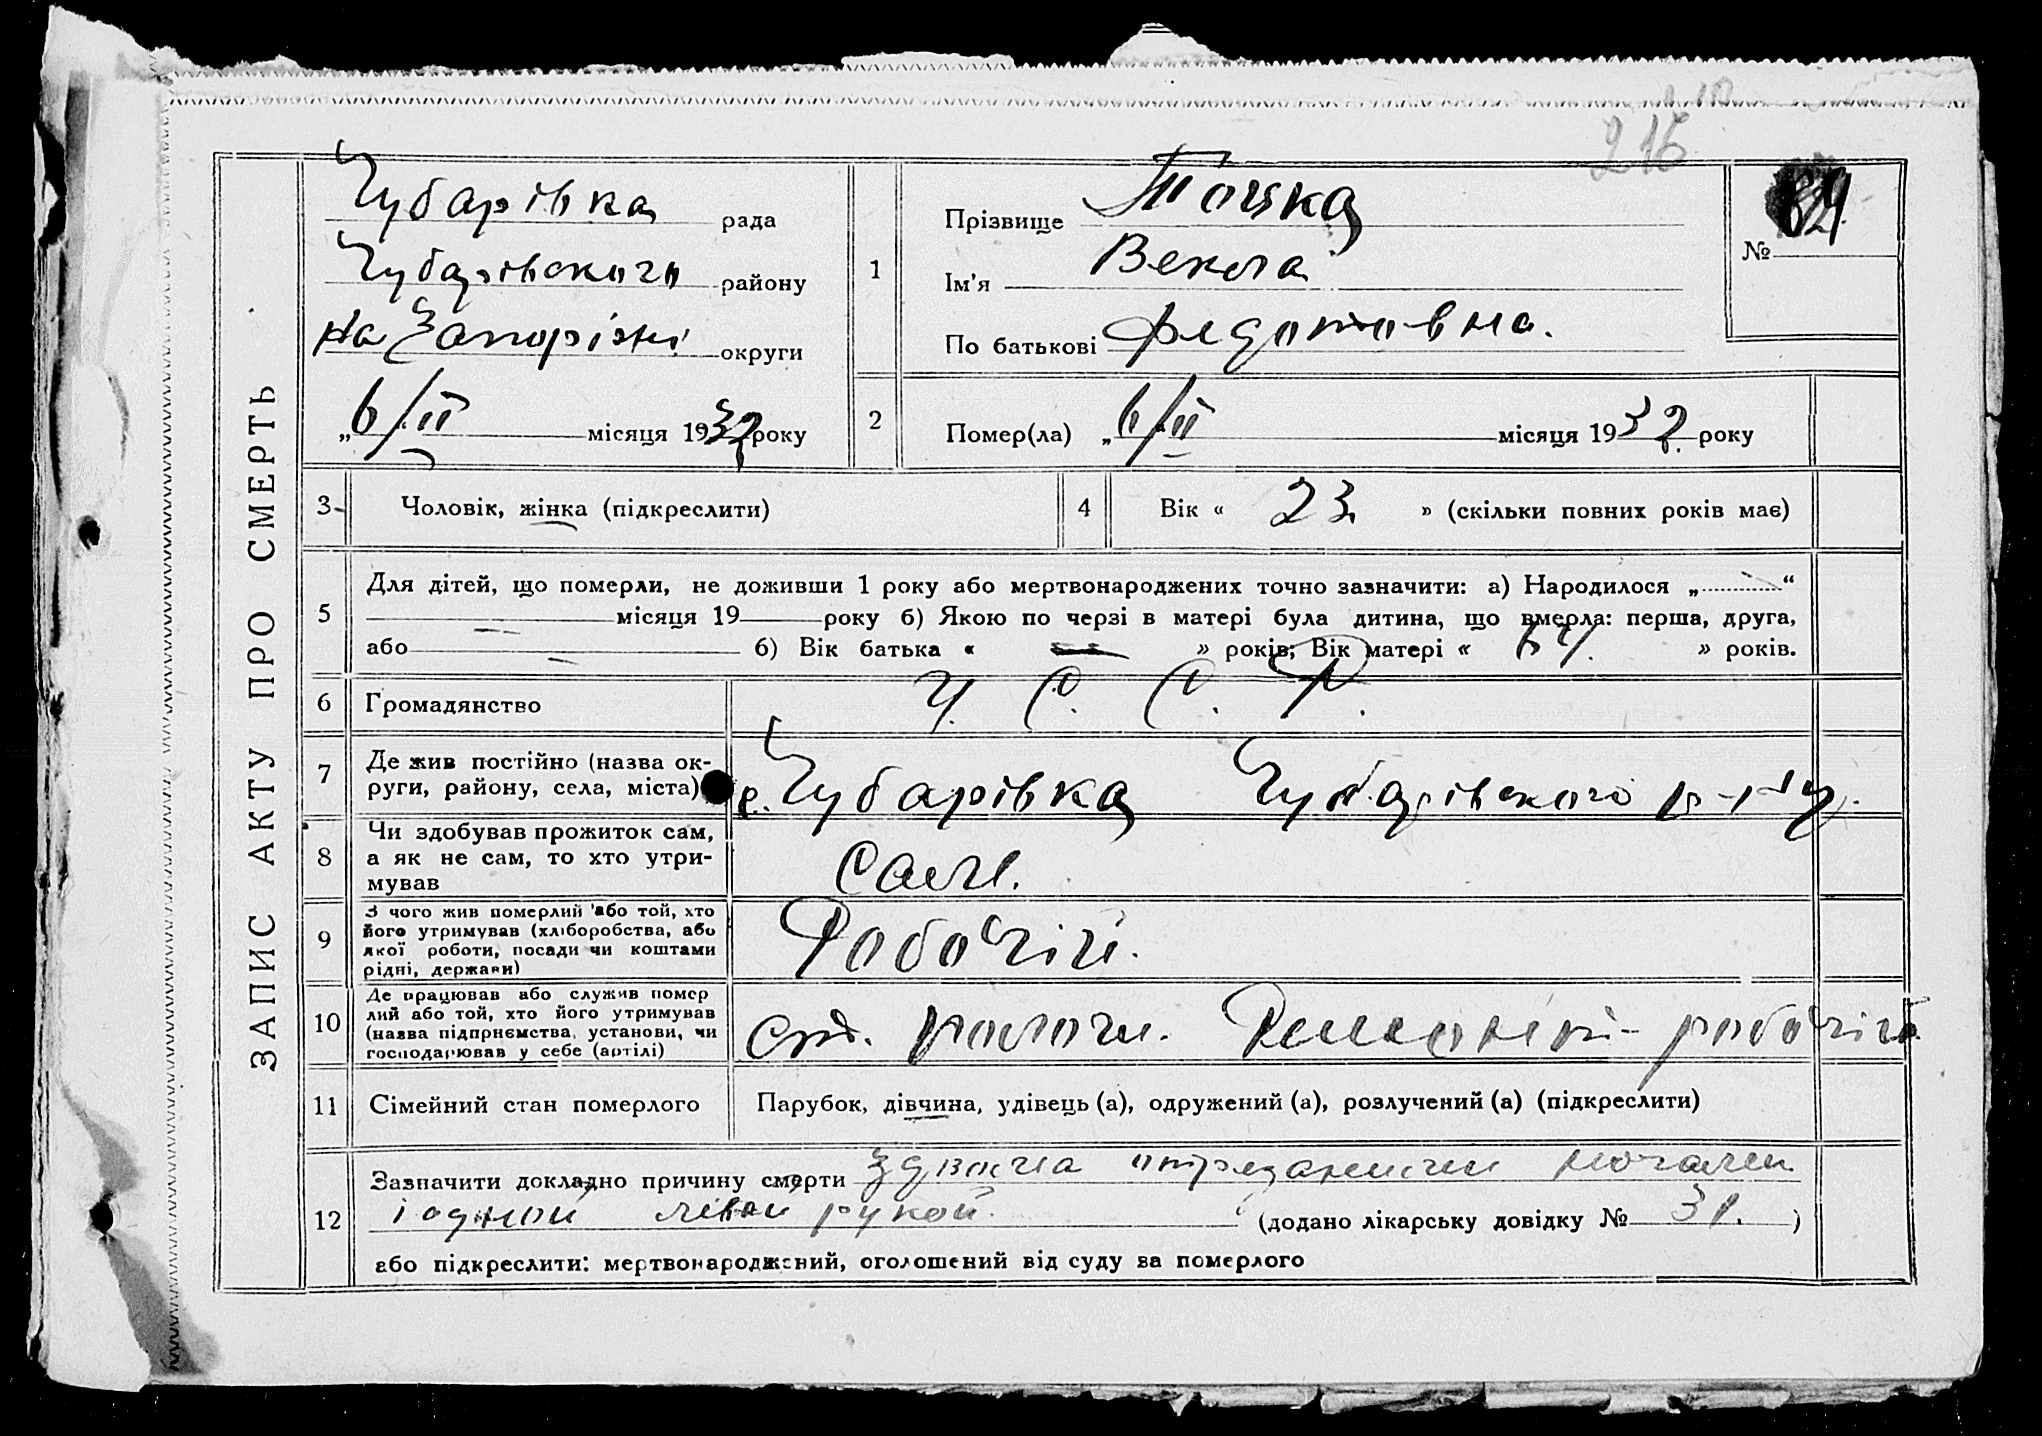 216
ЗАПИС АКТУ ПРО СМЕРТЬ
Чубарівка рада
Чубарівского району
на Запоріжі округи
„6/II місяця 1932 року
1
Прізвище Точка
Ім'я Векла
По батькові Федотовна.
№
2
Помер(ла) „6/II місяця 1932 року
3 Чоловік, жінка (підкреслити)
4 Вік « 23 » (скільки повних років має)
5
Для дітей, що померли, не доживши 1 року або мертвонароджених точно зазначити: а) Народилося „ “
місяця 19 року б) Якою по черзі в матері була дитина, що вмерла: перша, друга,
або б) Вік батька « — » років; Вік матері « 64. » років.
6 Громадянство У. С. С. Р.
7 Де жив постійно (назва ок-
руги, району, села, міста) с. Чубарівка Чубарівского р-ну.
8 Чи здобував прожиток сам,
а як не сам, то хто утри-
мував
Сам.
9 З чого жив померлий або той, хто
його утримував (хліборобства, або
якої роботи, посади чи коштами
рідні, держави)
Робочій.
10 Де працював або служив помер
лий або той, хто його утримував
(назва підприємства, установи, чи
господарював у себе (артілі)
Ст. Пологи. Ремонт- робочій
11 Сімейний стан померлого Парубок, дівчина, удівець (а), одружений (а), розлучений (а) (підкреслити)
12
Зазначити докладно причину смерти отрезаними ногами
і одной лівой рукой. (додано лікарську довідку № 31. )
або підкреслити: мертвонароджений, оголошений від суду за померлого